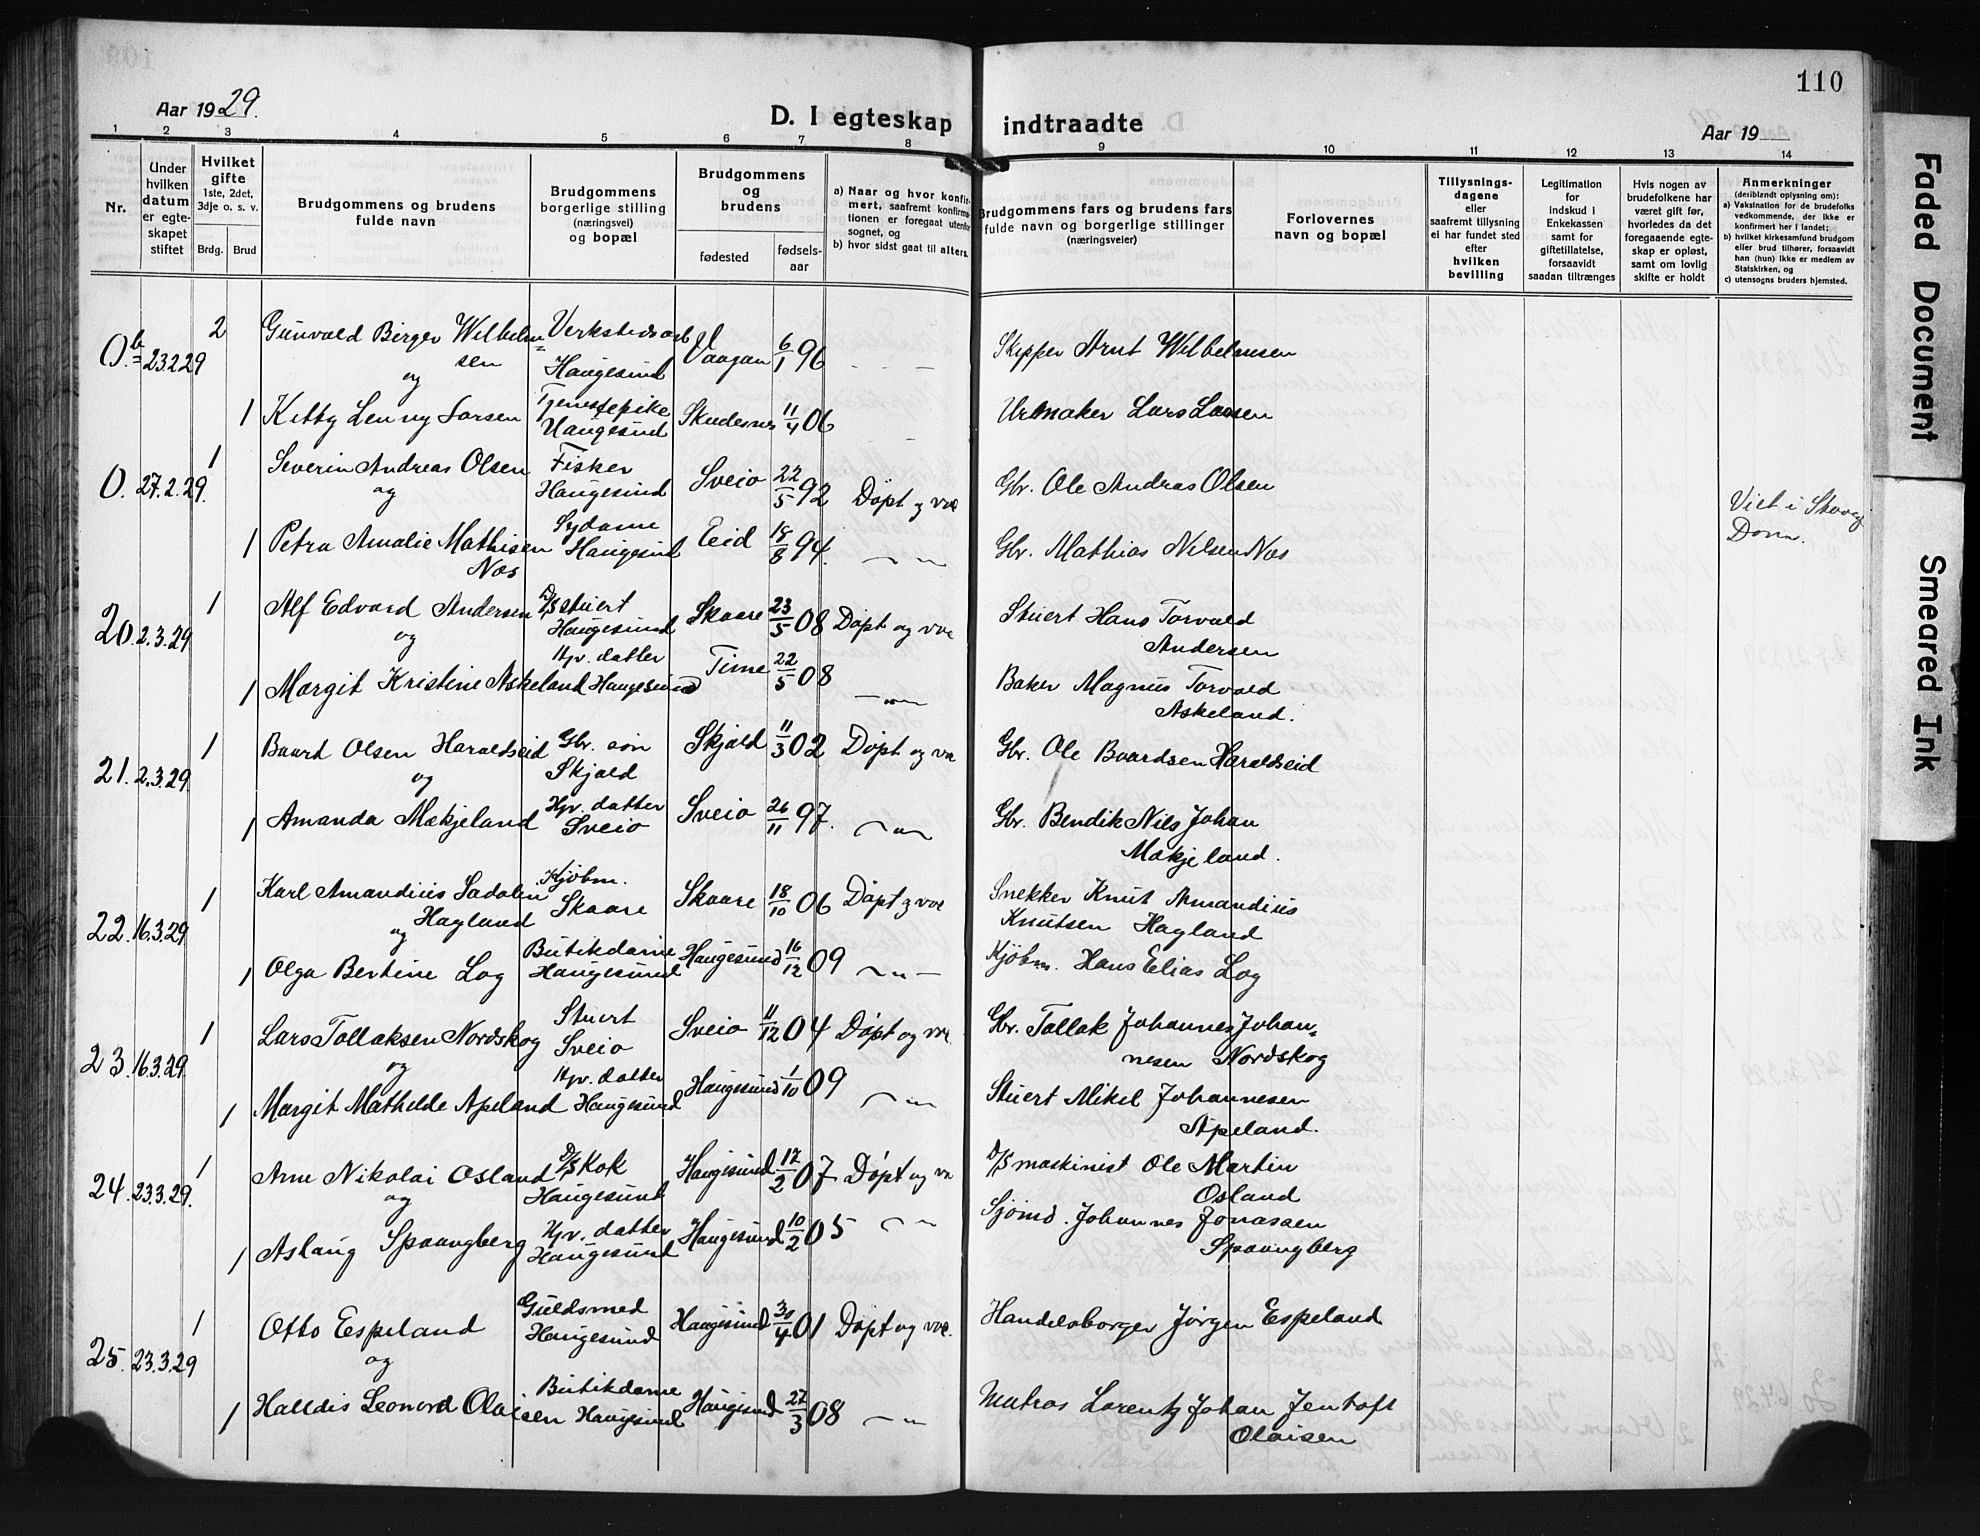 110
Aar 1929.
D. I egteskap indtraadte
Aar 19
1 2 3 4 5 6 7 8 9 10 11 12 13 14
Nr.
Under hvilken datum er egteskapet stiftet
Hvilket gifte 1ste, 2det, 3dje o. s. v.
Brdg. Brud
Brudgommens og brudens fulde navn
Brudgommens borgerlige stilling (næringsvei) og bopæl
Brudgommens og brudens
fødested fødsels-aar
a) Naar og hvor konfirmert, saafremt konfirmationen er foregaat utenfor sognet, og
b) hvor sidst gaat til alters.
Brudgommens fars og brudens fars fulde navn og borgerlige stillinger (næringsveier)
Forlovernes navn og bopæl
Tillysnings-dagene eller saafremt tillysning ei har fundet sted efter hvilken bevilling
Legitimation for indskud i Enkekassen samt for giftetillatelse, forsaavidt saadan tiltrænges
Hvis nogen av brudefolkene har været gift før, hvorledes da det foregaaende egteskap er opløst, samt om lovlig skifte er holdt
Anmerkninger (deriblandt oplysning om):
a) Vaksination for de brudefolks vedkommende, der ikke er konfirmert her i landet;
b) hvilket kirkesamfund brudgom eller brud tilhører, forsaavidt han (hun) ikke er medlem av Statskirken, og
c) utensogns bruders hjemsted.
0b 23.2.29 2 Gunvald Birger Wilhelmsen Verkstedsarb Haugesund Vaagan 6/1 96 Skipper Arnt Wilhelmsen
og
1 Kitty Lenny Larsen Tjenestepike Haugesund Skudesnes 11/4 06 Urmaker Lars Larsen
0. 27.2.29. 1 Severin Andreas Olsen Fisker Haugesund Sveio 22/5 92 Døpt og vac Gbr. Ole Andras Olsen
og
1 Petra Amalie Mathisen Næs Sydame Haugesund Eid 18/8 94. Gbr. Mathias Nilsen Næs
Viet i Stavg Dom.
20. 2.3.29 1 Alf Edvard Andersen D/S stuert Haugesund Skaare 23/5 08 Døpt og vac Stuert Hans Torvald Andersen
og
1 Margit Kristine Askeland Hpr. datter Haugesund Time 22/5 08 Baker Magnus Torvald Askeland.
21. 2.3.29 1 Baard Olsen Haraldseid Gbr. søn Skjold Skjold 11/3 02 Døpt og vac Gbr. Ole Baardsen Haraldseid
og
1 Amanda Mækjeland Hpr. datter Sveio Sveio 26/11 97. Gbr. Bendik Nils Johan Mækjeland.
22. 16.3.29 1 Karl Amandius Sadolin Hagland Kjøbm. Skaare Skaare 18/10 06 Døpt og vac Snekker Knut Amandius Knutsen Hagland
og
1 Olga Bertine Log Butikdame Haugesund Haugesund 16/12 09 Kjøbm. Hans Elias Log
23. 16.3.29. 1 Lars Tollaksen Nordskog Stuert Sveio Sveio 11/12 04 Døpt og vac Gbr. Tollak Johannes Johannesen Nordskog
og
1 Margit Mathilde Apeland Hpr. datter Haugesund Haugesund 1/10 09 Stuert Mikel Johannesen Apeland.
24. 23.3.29. 1 Arne Nikolai Osland D/S Kok Haugesund Haugesund 17/2 07 Døpt og va D/S maskinist Ole Martin Osland
og
1 Aslaug Spaangberg Hpr. datter Haugesund Haugesund 10/2 05 Sjømd. Johannes Jonassen Spaangberg
25. 23.3.29 1 Otto Espeland Guldsmed Haugesund Haugesund 30/4 01 Døpt og vac. Handelsborger Jørgen Espeland
og
1 Halldis Leonard Olaisen Butikdame Haugesund Haugesund 27/3 08 Matros Lorentz Johan Jentoft Olaisen
Faded Document
Smeared Ink